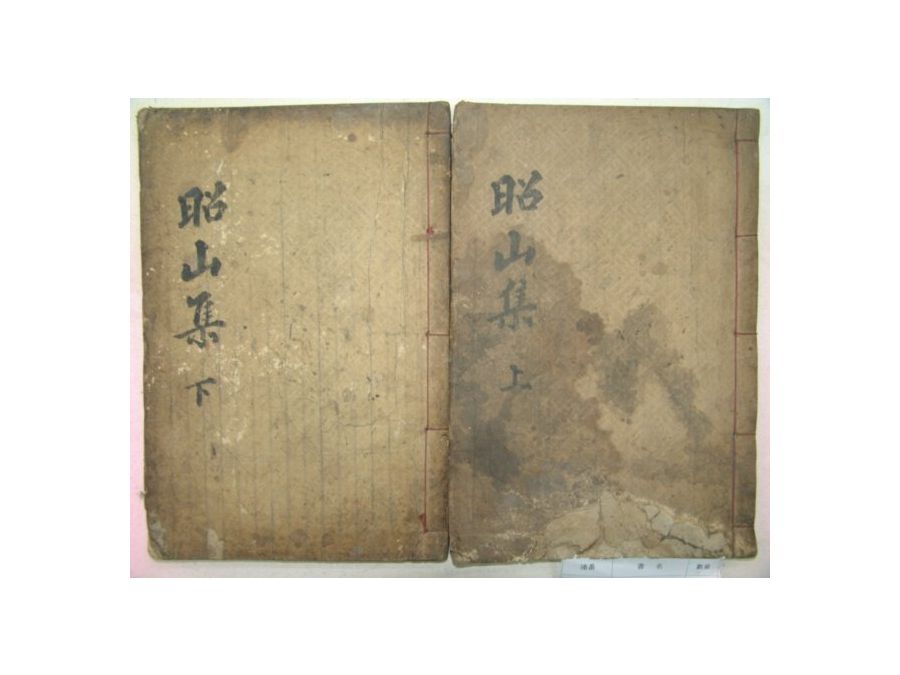 昭山集 上
昭山集 下
書名